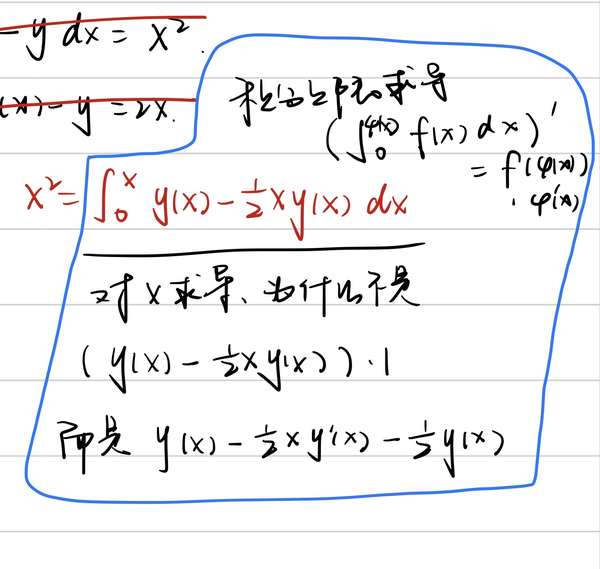 - y dx = x².
(x) - y = 2x.
积分上限求导
(∫₀^φ(x) f(x) dx)'
= f(φ(x))
· φ'(x)
x² = ∫₀^x y(x) - ½xy(x) dx
对 x 求导、为什么不是
(y(x) - ½xy(x)) · 1
而是 y(x) - ½xy'(x) - ½y(x)